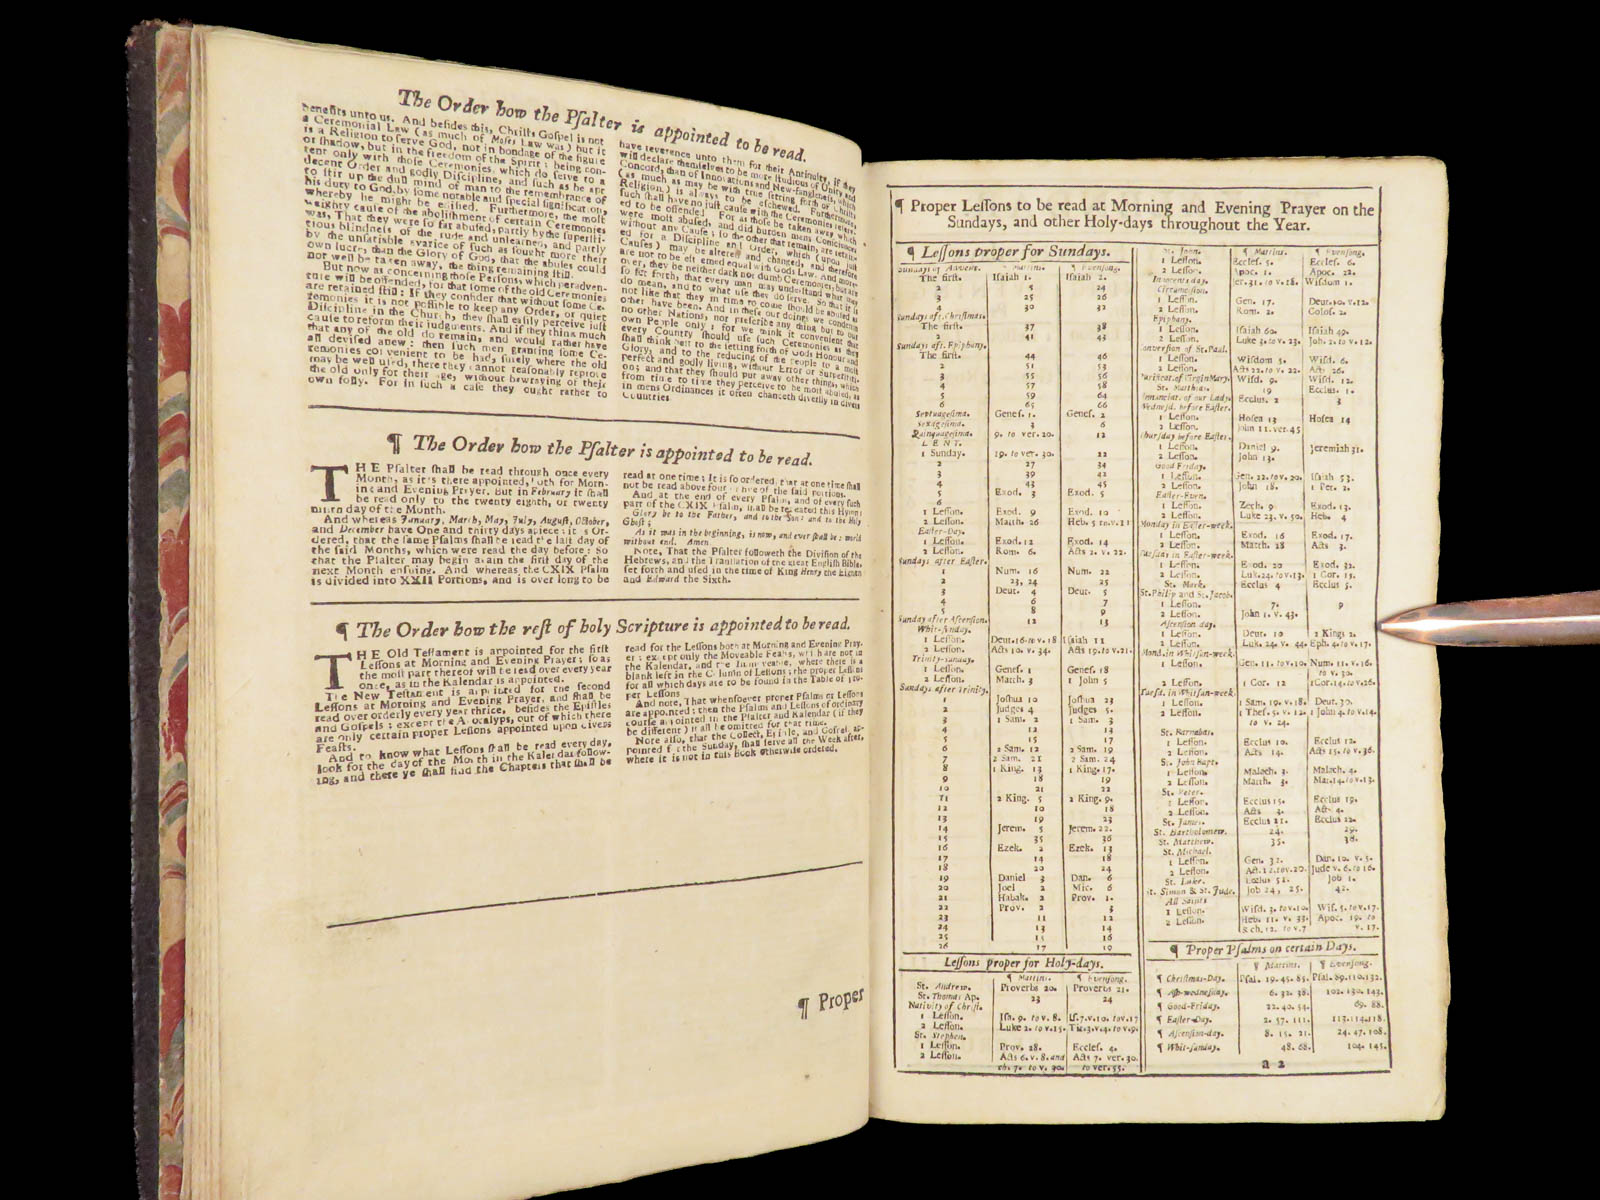 The Order how the Pſalter is appointed to be read.
benefits unto us. And beſides this, Chriſts Goſpel is not
a Ceremonial Law (as much of Moſes Law was) but it
is a Religion to ſerve God, not in bondage of the figure
or ſhadow, but in the freedom of the Spirit; being con-
tent only with thoſe Ceremonies, which do ſerve to a
decent Order and godly Diſcipline, and ſuch as be apt
to ſtir up the dull mind of man to the remembrance of
his duty to God, by ſome notable and ſpecial ſignification,
whereby he might be edified. Furthermore, the moſt
weighty cauſe of the aboliſhment of certain Ceremonies
was, That they were ſo far abuſed, partly by the ſuperſti-
tious blindneſs of the rude and unlearned, and partly
by the unſatiable avarice of ſuch as ſought more their
own lucre, than the Glory of God, that the abuſes could
not well be taken away, the thing remaining ſtill.
But now as concerning thoſe Perſons, which peradven-
ture will be offended, for that ſome of the old Ceremonies
are retained ſtill: If they conſider that without ſome Ce-
remonies it is not poſſible to keep any Order, or quiet
Diſcipline in the Church, they ſhall eaſily perceive juſt
cauſe to reform their judgments. And if they think much
that any of the old do remain, and would rather have
all deviſed anew: then ſuch men granting ſome Ce-
remonies convenient to be had, ſurely where the old
may be well uſed, there they cannot reaſonably reprove
the old only for their age, without bewraying of their
own folly. For in ſuch a caſe they ought rather to
have reverence unto them for their Antiquity, if they
will declare themſelves to be more ſtudious of Unity and
Concord, than of Innovations and New-fangleneſs, which
(as much as may be with true ſetting forth of Chriſts
Religion) is always to be eſchewed. Furthermore,
ſuch ſhall have no juſt cauſe with the Ceremonies reſerv-
ed to be offended. For as thoſe be taken away which
were moſt abuſed, and did burden mens Conſciences
without any Cauſe; ſo the other that remain, are retain-
ed for a Diſcipline and Order, which (upon juſt
Cauſes) may be altered and changed, and therefore
are not to be eſteemed equal with Gods Law. And more-
over, they be neither dark nor dumb Ceremonies, but are
ſo ſet forth, that every man may underſtand what they
do mean, and to what uſe they do ſerve. So that it is
not like that they in time to come ſhould be abuſed as
other have been. And in theſe our doings we condemn
no other Nations, nor preſcribe any thing but to our
own People only; for we think it convenient that
every Country ſhould uſe ſuch Ceremonies as they
ſhall think beſt to the ſetting forth of Gods Honour and
Glory, and to the reducing of the people to a moſt
perfect and godly living, without Error or Superſtiti-
on; and that they ſhould put away other things, which
from time to time they perceive to be moſt abuſed, as
in mens Ordinances it often chanceth diverſly in divers
Countries.
¶ The Order how the Pſalter is appointed to be read.
THE Pſalter ſhall be read through once every
Month, as it is there appointed, both for Morn-
ing and Evening Prayer. But in February it ſhall
be read only to the twenty eighth, or twenty
ninth day of the Month.
And whereas January, March, May, July, Auguſt, October,
and December have One and thirty days apiece: it is Or-
dered, that the ſame Pſalms ſhall be read the laſt day of
the ſaid Months, which were read the day before: So
that the Pſalter may begin again the firſt day of the
next Month enſuing. And whereas the CXIX Pſalm
is divided into XXII Portions, and is over long to be
read at one time; It is ſo ordered, that at one time ſhall
not be read above four or five of the ſaid portions.
And at the end of every Pſalm, and of every ſuch
part of the CXIX Pſalm, ſhall be repeated this Hymn:
Glory be to the Father, and to the Son: and to the Holy
Ghoſt;
As it was in the beginning, is now, and ever ſhall be: world
without end. Amen.
Note, That the Pſalter followeth the Diviſion of the
Hebrews, and the Tranſlation of the great Engliſh Bible,
ſet forth and uſed in the time of King Henry the Eighth
and Edward the Sixth.
¶ The Order how the reſt of holy Scripture is appointed to be read.
THE Old Teſtament is appointed for the firſt
Leſſons at Morning and Evening Prayer; ſo as
the moſt part thereof will be read over every year
once, as in the Kalendar is appointed.
The New Teſtament is appointed for the ſecond
Leſſons at Morning and Evening Prayer, and ſhall be
read over orderly every year thrice, beſides the Epiſtles
and Goſpels: except the Apocalyps, out of which there
are only certain proper Leſſons appointed upon divers
Feaſts.
And to know what Leſſons ſhall be read every day,
look for the day of the Month in the Kalendar follow-
ing, and there ye ſhall find the Chapters that ſhall be
read for the Leſſons both at Morning and Evening Pray-
er: except only the Moveable Feaſts, which are not in
the Kalendar, and the Immoveable, where there is a
blank left in the Column of Leſſons; the proper Leſſons
for all which days are to be found in the Table of pro-
per Leſſons.
And note, That whenſoever proper Pſalms or Leſſons
are appointed; then the Pſalms and Leſſons of ordinary
courſe appointed in the Pſalter and Kalendar (if they
be different) ſhall be omitted for that time.
Note alſo, that the Collect, Epiſtle, and Goſpel ap-
pointed for the Sunday, ſhall ſerve all the Week after,
where it is not in this Book otherwiſe ordered.
¶ Proper
¶ Proper Leſſons to be read at Morning and Evening Prayer on the
Sundays, and other Holy-days throughout the Year.
¶ Leſſons proper for Sundays.
Sundays of Advent. ¶ Mattins. ¶ Evenſong.
The firſt. Iſaiah 1. Iſaiah 2.
2 5 24
3 25 26
4 30 32
Sundays aft. Chriſtmas.
The firſt. 37 38
2 41 43
Sundays aft. Epiphany.
The firſt. 44 46
2 51 53
3 55 56
4 57 58
5 59 64
6 65 66
Septuageſima. Geneſ. 1. Geneſ. 2
Sexageſima. 3 6
Quinquageſima. 9. to ver. 20. 12
LENT.
1 Sunday. 19. to ver. 30. 22
2 27 34
3 39 42
4 43 45
5 Exod. 3 Exod. 5
6
1 Leſſon. Exod. 9 Exod. 10
2 Leſſon. Matth. 26 Heb. 5 to v. 11
Eaſter-Day.
1 Leſſon. Exod. 12 Exod. 14
2 Leſſon. Rom. 6. Acts 2. v. 22.
Sundays after Eaſter.
1 Num. 16 Num. 22
2 23, 24 25
3 Deut. 4 Deut. 5
4 6 7
5 8 9
Sunday after Aſcenſion. 12 13
Whit-ſunday.
1 Leſſon. Deut. 16. to v. 18 Iſaiah 11
2 Leſſon. Acts 10. v. 34. Acts 19. to v. 21.
Trinity-ſunday.
1 Leſſon. Geneſ. 1 Geneſ. 18
2 Leſſon. Matth. 3 1 John 5
Sundays after Trinity.
1 Joſhua 10 Joſhua 23
2 Judges 4 Judges 5.
3 1 Sam. 2 1 Sam. 3
4 12 13
5 15 17
6 2 Sam. 12 2 Sam. 19
7 2 Sam. 21 2 Sam. 24
8 1 King. 13 1 King. 17.
9 18 19
10 21 22
11 2 King. 5 2 King. 9.
12 10 18
13 19 23
14 Jerem. 5 Jerem. 22.
15 35 36
16 Ezek. 2 Ezek. 13
17 14 18
18 20 24
19 Daniel 3 Dan. 6
20 Joel 2 Mic. 6
21 Habak. 2 Prov. 1.
22 Prov. 2 3
23 11 12
24 13 14
25 15 16
26 17 19
Leſſons proper for Holy-days.
¶ Mattins. ¶ Evenſong.
St. Andrew. Proverbs 20. Proverbs 21.
St. Thomas Ap. 23 24
Nativity of Chriſt.
1 Leſſon. Iſa. 9. to v. 8. Iſ. 7. v. 10. to v. 17
2 Leſſon. Luke 2. to v. 15. Tit. 3. v. 4. to v. 9.
St. Stephen.
1 Leſſon. Prov. 28. Eccleſ. 4.
2 Leſſon. Acts 6. v. 8. and Acts 7. ver. 30.
ch. 7. to v. 30. to ver. 55.
St. John. ¶ Mattins. ¶ Evenſong.
1 Leſſon. Eccleſ. 5. Eccleſ. 6.
2 Leſſon. Apoc. 1. Apoc. 22.
Innocents day. Jer. 31. to v. 18. Wiſdom 1.
Circumciſion.
1 Leſſon. Gen. 17. Deut. 10. v. 12.
2 Leſſon. Rom. 2. Coloſ. 2.
Epiphany.
1 Leſſon. Iſaiah 60. Iſaiah 49.
2 Leſſon. Luke 3. to v. 23. Joh. 2. to v. 12.
Converſion of St. Paul.
1 Leſſon. Wiſdom 5. Wiſd. 6.
2 Leſſon. Acts 22. to v. 22. Acts 26.
Purificat. of Virgin Mary. Wiſd. 9. Wiſd. 12.
St. Matthias. 19 Ecclus. 1.
Annunciat. of our Lady. Ecclus. 2 3
Wedneſd. before Eaſter.
1 Leſſon. Hoſea 13 Hoſea 14
2 Leſſon. John 11. ver. 45
Thurſday before Eaſter.
1 Leſſon. Daniel 9. Jeremiah 31.
2 Leſſon. John 13.
Good Friday.
1 Leſſon. Gen. 22. to v. 20. Iſaiah 53.
2 Leſſon. John 18. 1 Pet. 2.
Eaſter-Even.
1 Leſſon. Zech. 9 Exod. 13.
2 Leſſon. Luke 23. v. 50. Heb. 4
Monday in Eaſter-week.
1 Leſſon. Exod. 16 Exod. 17.
2 Leſſon. Matth. 28 Acts 3.
Tueſday in Eaſter-week.
1 Leſſon. Exod. 20 Exod. 32.
2 Leſſon. Luk. 24. to v. 13. 1 Cor. 15.
St. Mark. Ecclus 4 Ecclus 5.
St. Philip and St. Jacob.
1 Leſſon. 7. 9
2 Leſſon. John 1. v. 43.
Aſcenſion day.
1 Leſſon. Deut. 10 2 Kings 2.
2 Leſſon. Luk. 24. v. 44. Eph. 4. to v. 17.
Mond. in Whitſun-week.
1 Leſſon. Gen. 11. to v. 10. Num. 11. v. 16.
to v. 30.
2 Leſſon. 1 Cor. 12 1 Cor. 14. to v. 26.
Tueſd. in Whitſun-week.
1 Leſſon. 1 Sam. 19. v. 18. Deut. 30.
2 Leſſon. 1 Theſ. 5. v. 12. 1 John 4. to v. 14.
to v. 24.
St. Barnabas.
1 Leſſon. Ecclus 10. Ecclus 12.
2 Leſſon. Acts 14. Acts 15. to v. 36.
St. John Bapt.
1 Leſſon. Malach. 3. Malach. 4.
2 Leſſon. Matth. 3. Mat. 14. to v. 13.
St. Peter.
1 Leſſon. Ecclus 15. Ecclus 19.
2 Leſſon. Acts 3. Acts 4.
St. James. Ecclus 21. Ecclus 22.
St. Bartholomew. 24. 29.
St. Matthew. 35. 38.
St. Michael.
1 Leſſon. Gen. 32. Dan. 10. v. 5.
2 Leſſon. Act. 12. to v. 20. Jude v. 6. to 16.
St. Luke. Ecclus 51. Job 1.
St. Simon & St. Jude. Job 24, 25. 42.
All Saints
1 Leſſon. Wiſd. 3. to v. 10. Wiſ. 5. to v. 17.
2 Leſſon. Heb. 11. v. 33. Apoc. 19. to
& ch. 12. to v. 7 v. 17.
¶ Proper Pſalms on certain Days.
¶ Mattins. ¶ Evenſong.
¶ Chriſtmas-Day. Pſal. 19. 45. 85. Pſal. 89. 110. 132.
¶ Aſh-wedneſday. 6. 32. 38. 102. 130. 143.
¶ Good-Friday. 22. 40. 54. 69. 88.
¶ Eaſter-Day. 2. 57. 111. 113. 114. 118.
¶ Aſcenſion-day. 8. 15. 21. 24. 47. 108.
¶ Whit-ſunday. 48. 68. 104. 145.
a 2